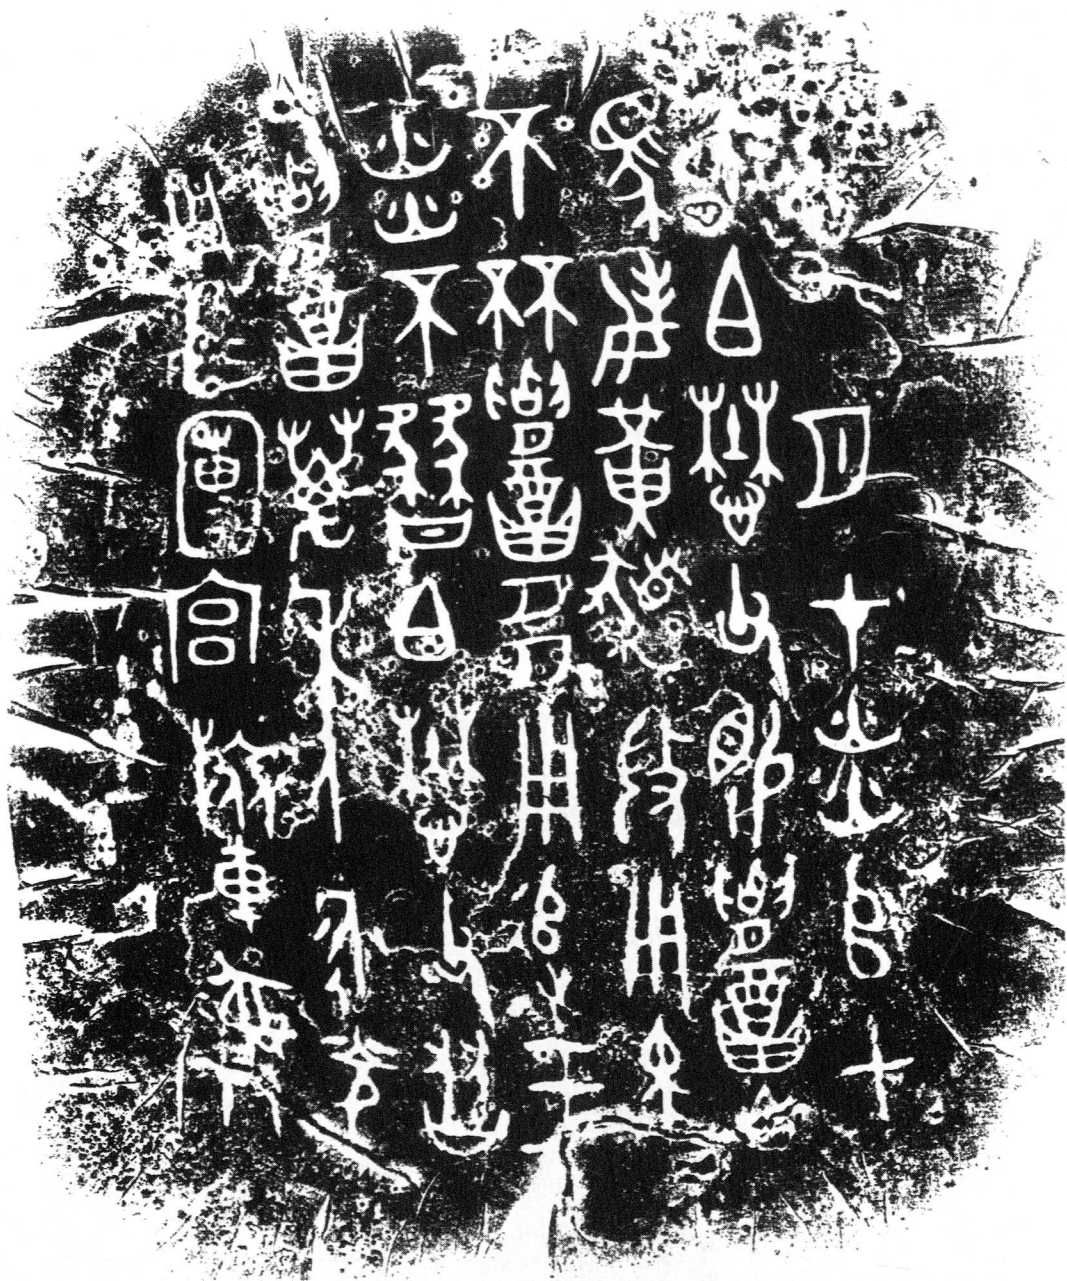 月才炎𠂤甲
白懋父賜召白
馬每黃髮微用
不杯召多用追于
炎不白懋父
友召萬年永光
用乍團宮旅彝